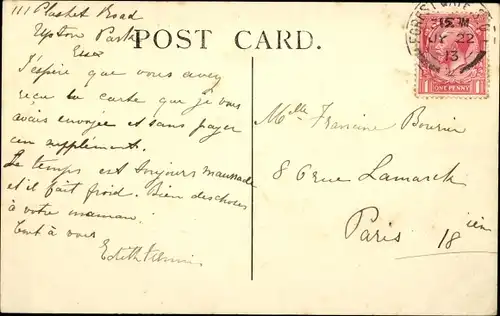 111 Plashet Road
Upton Park
Essex
POST CARD.
J'espère que vous avez
reçu la carte que je vous
avais envoyée et sans payer
un supplément.
Le temps est toujours maussade
et il fait froid. Bien des choses
à votre maman.
Tout à vous
Edith
FOREST GATE
15 M
JY 22
13
ONE PENNY
Mlle Francine Bourier
86 rue Lamarck
Paris 18ième